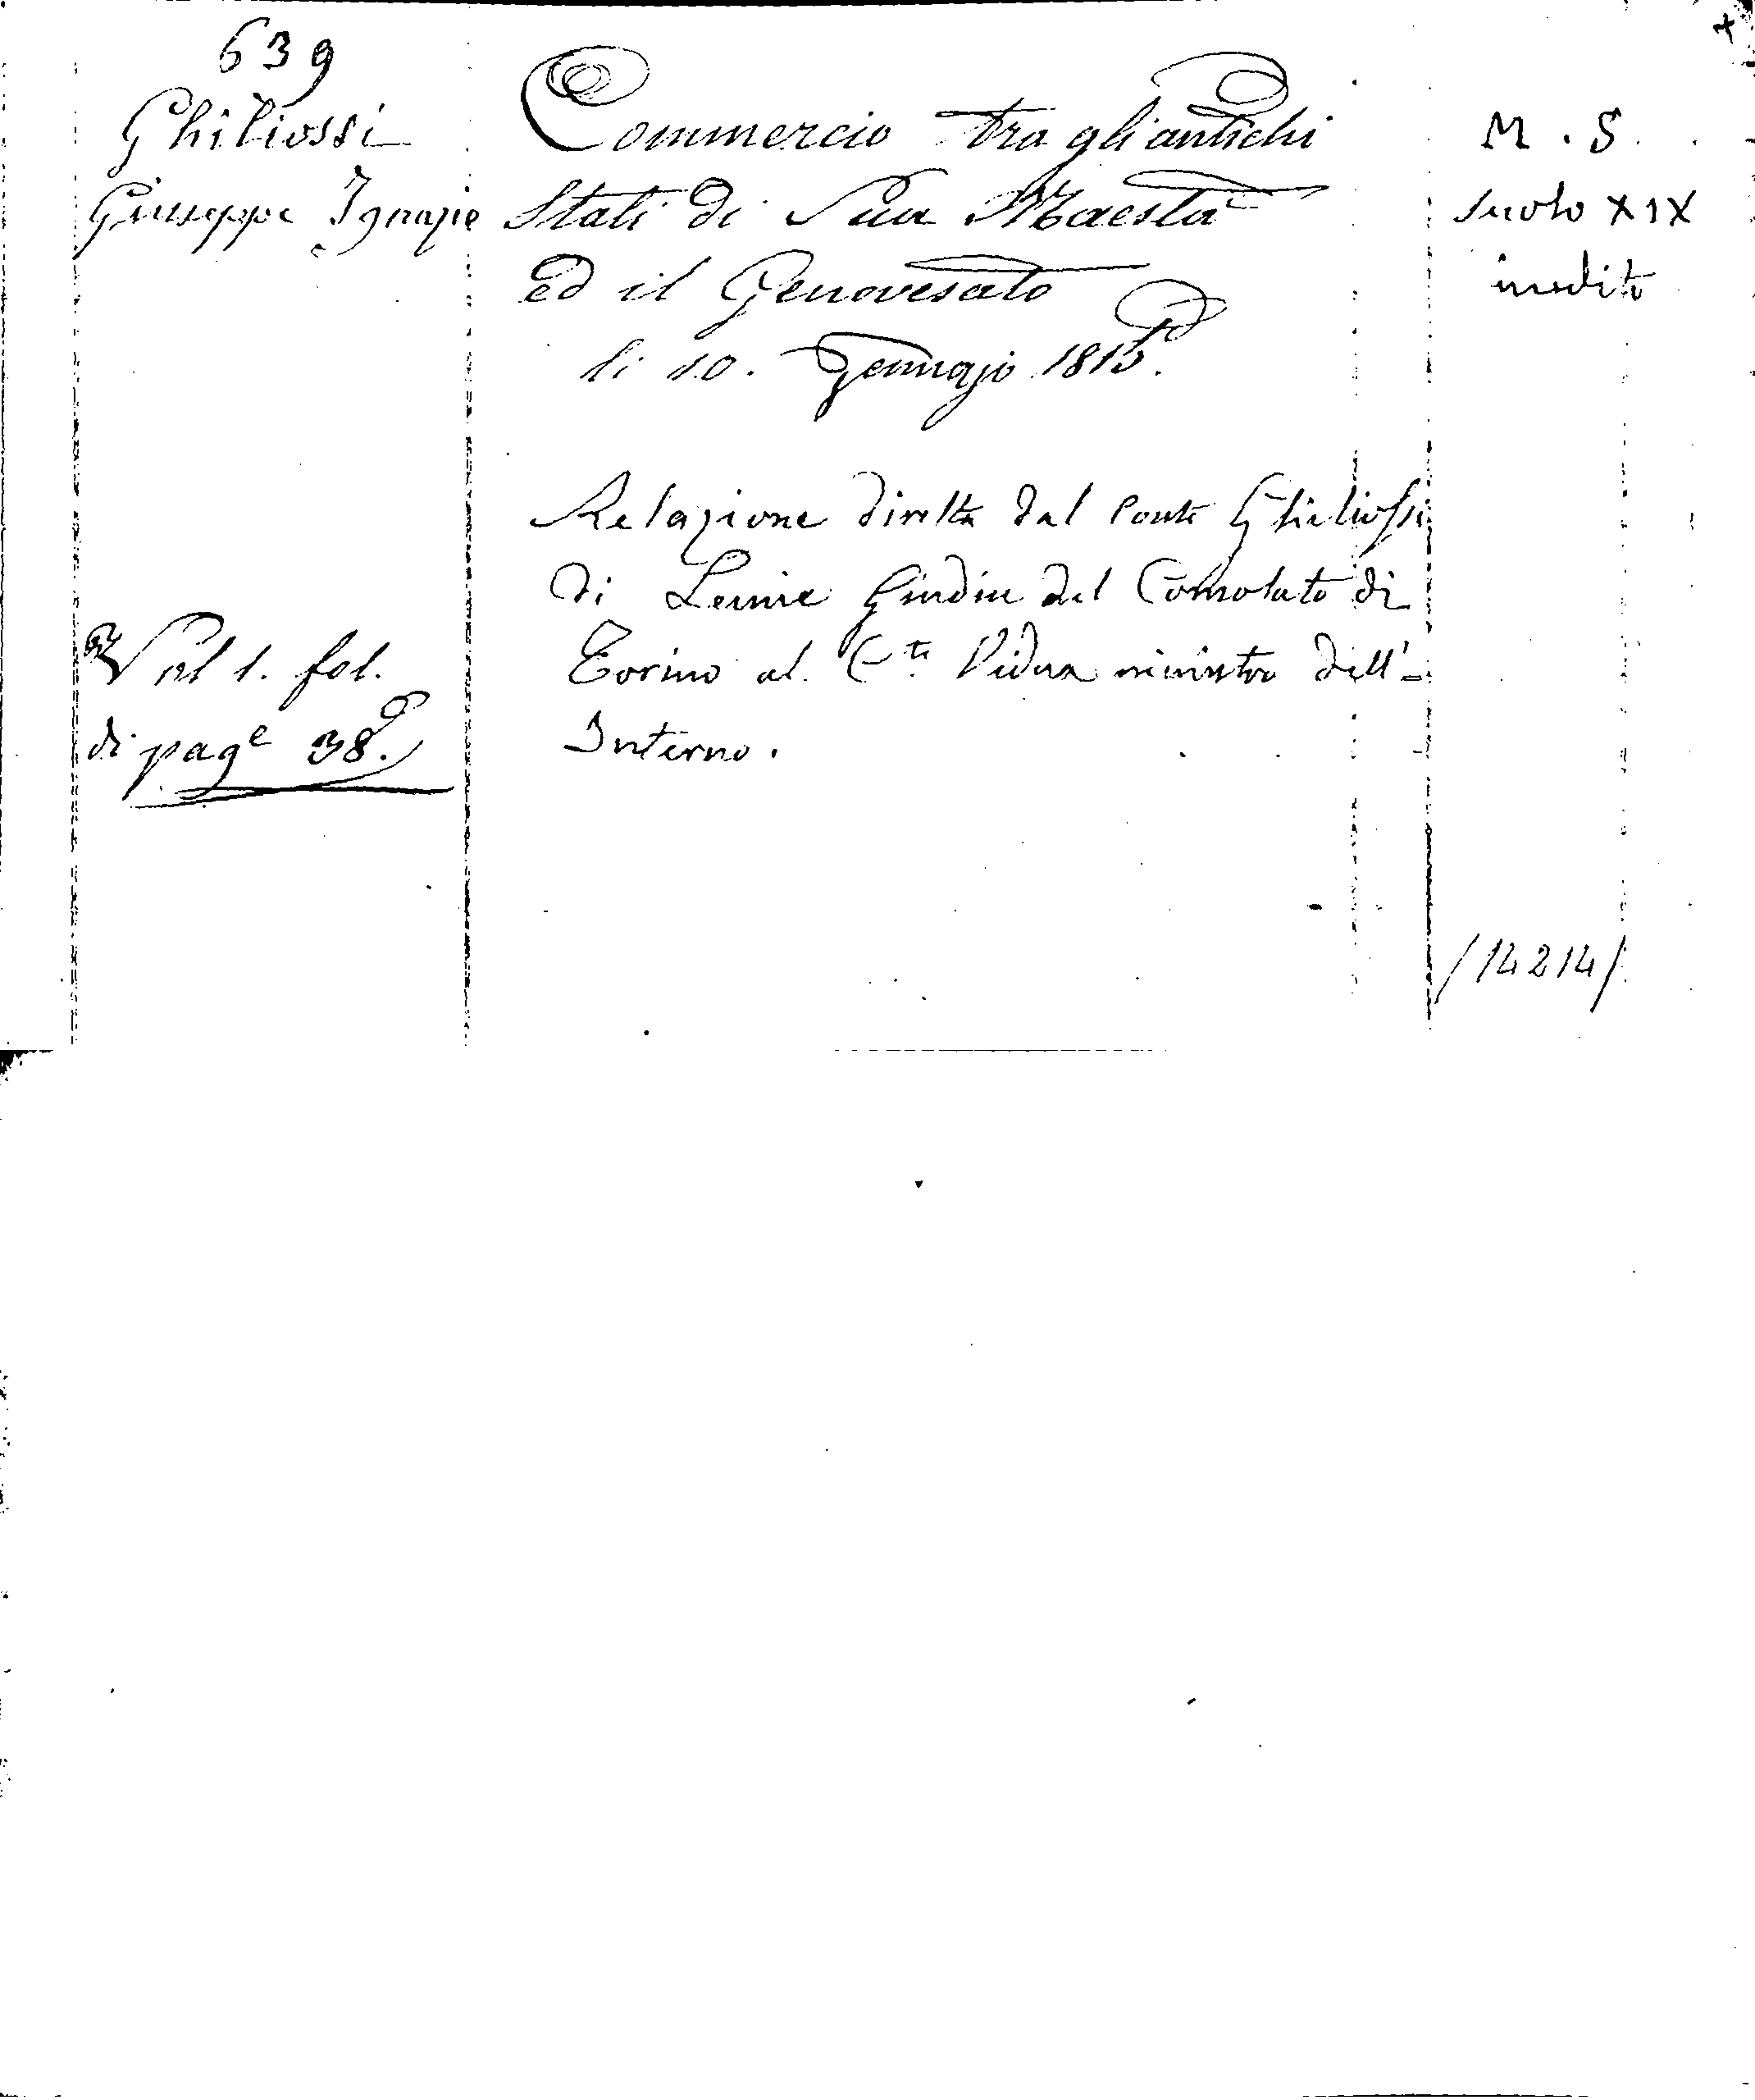 639
Ghiliossi
Giuseppe Ignazio
Vol 1. fol.
di pagᵉ 38.
Commercio tra gli antichi
Stati di Sua Maestà
ed il Genovesato
li 10. Gennajo 1815.
Relazione diretta dal Conte Ghiliossi
di Lemie Giudice del Consolato di
Torino al Cᵗᵉ Vidua ministro dell'-
Interno.
M. S.
Secolo XIX
inedito
/14214/